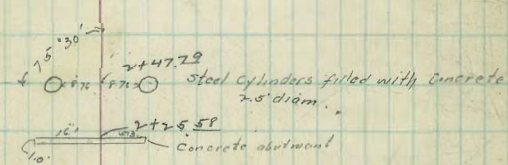 75°30'
2+47.79
8.76 8.76 steel cylinders filled with concrete
2.5' diam.
2+25.58
16'
Concrete abutment
1.0'